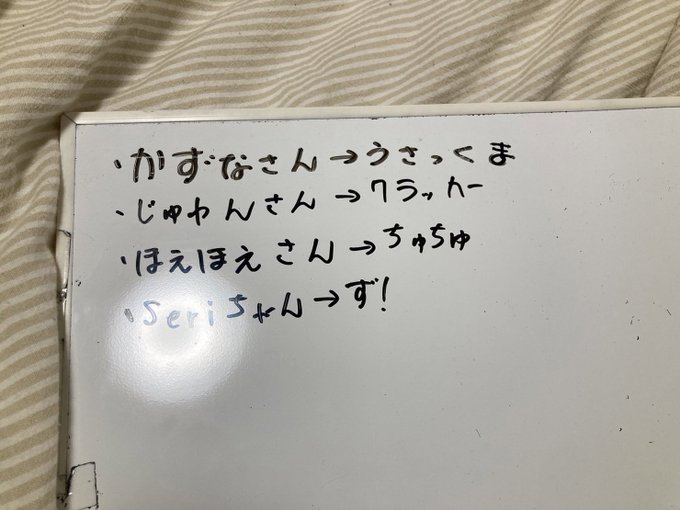 ・かずなさん→うさっくま
・じゅわんさん→クラッカー
・ほえほえさん→ちゅちゅ
・Seriちゃん→ず!